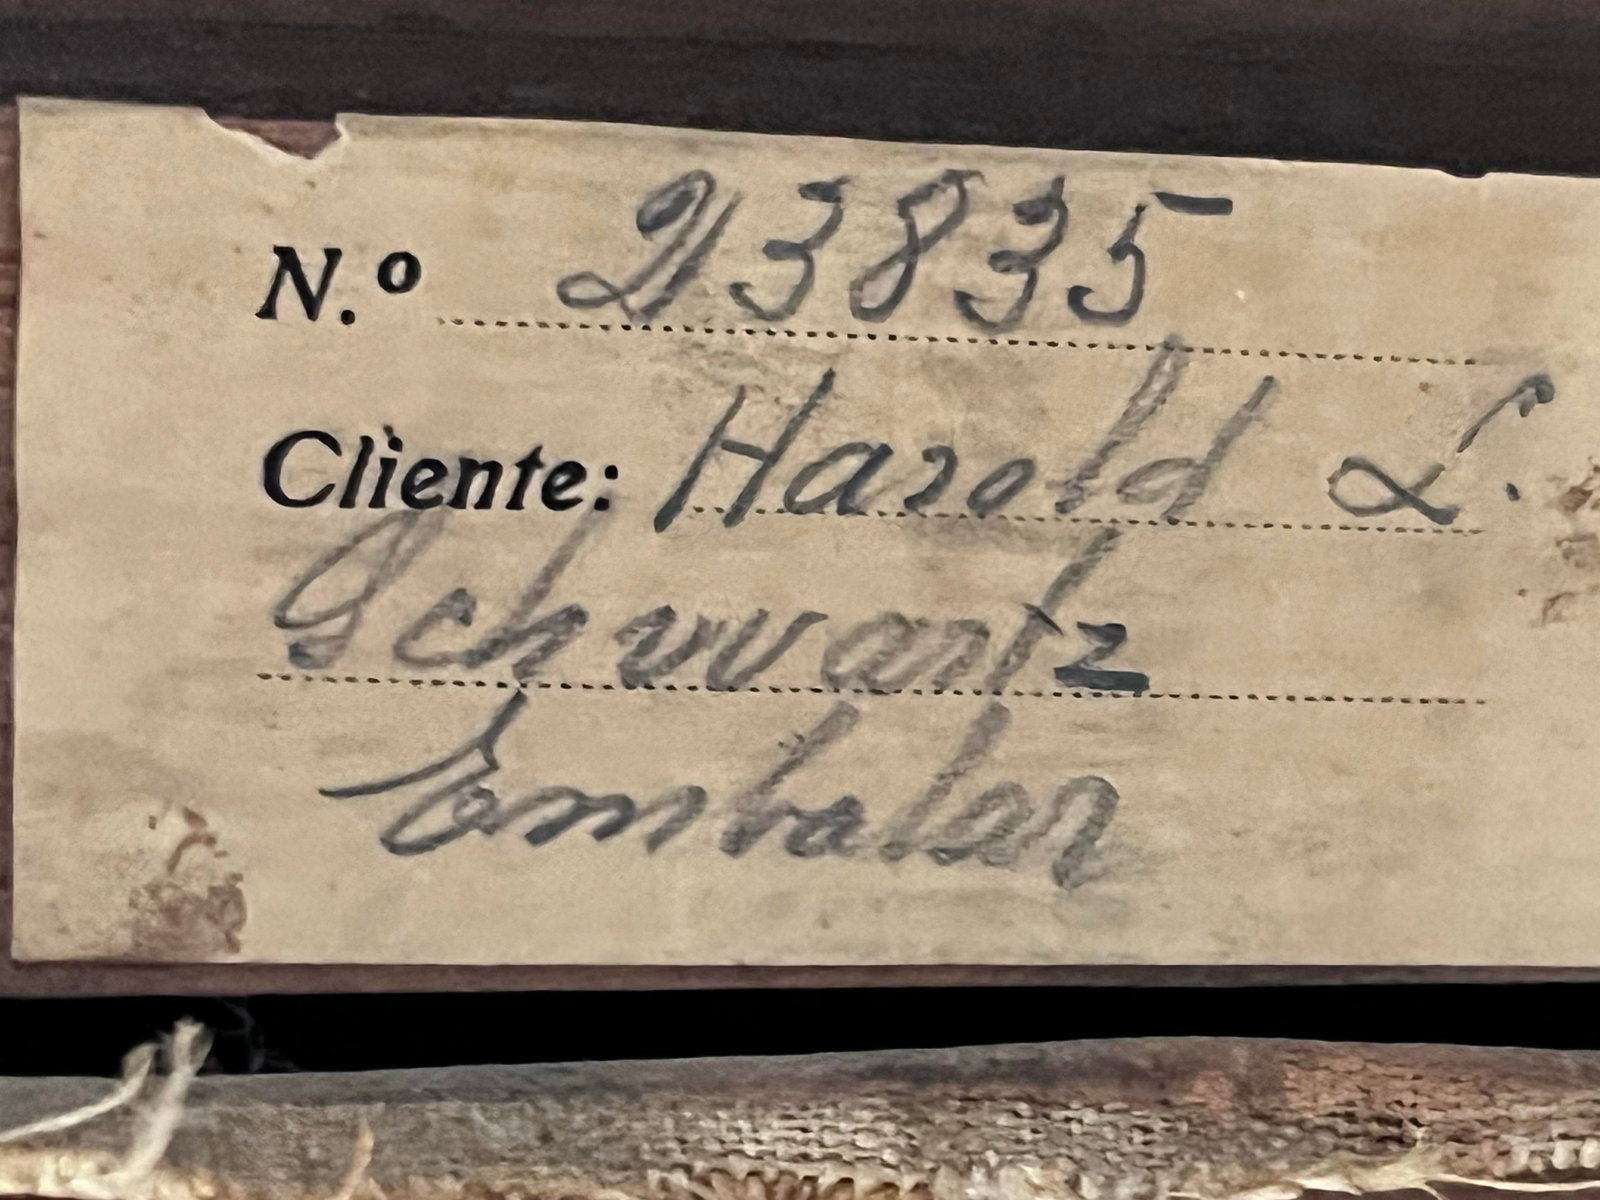 N.º 23835
Cliente: Harold L.
Schwartz
Embalar